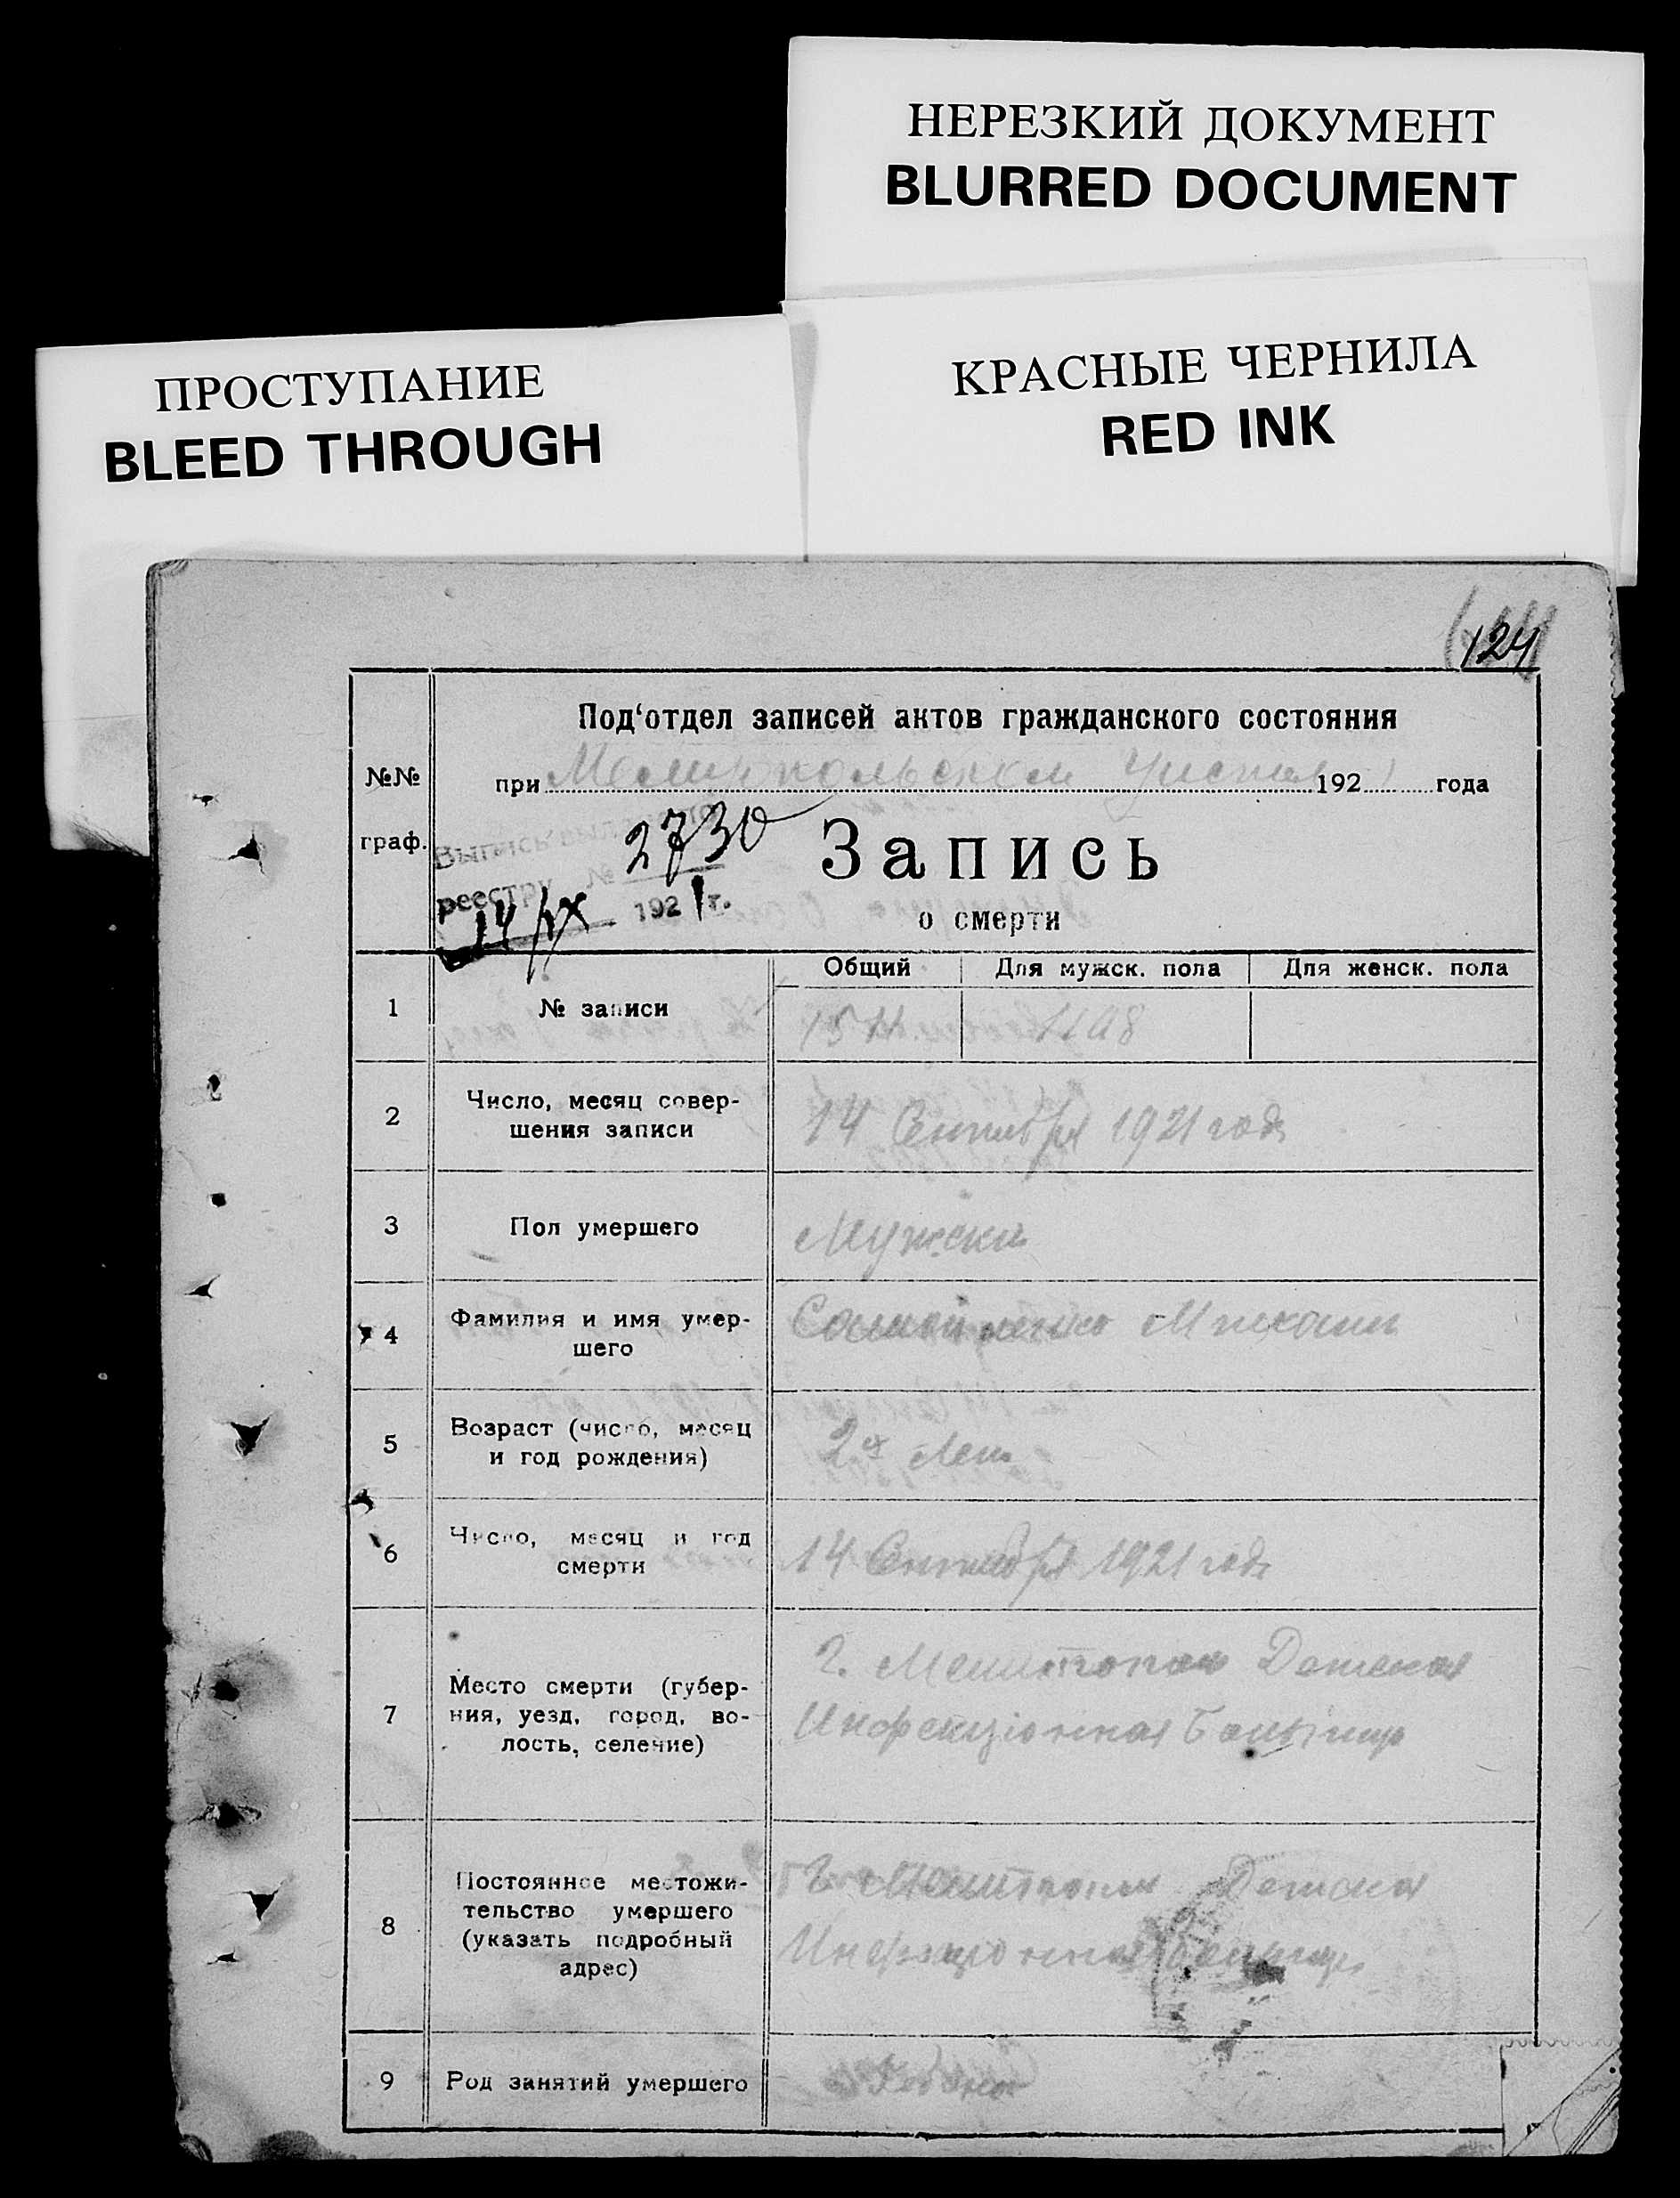 НЕРЕЗКИЙ ДОКУМЕНТ
BLURRED DOCUMENT
ПРОСТУПАНИЕ
BLEED THROUGH
КРАСНЫЕ ЧЕРНИЛА
RED INK
124
Под‘отдел записей актов гражданского состояния
№№
граф.
при 192 1 года
Выпись
реестру № 2730
14/IX 1921 г.
Запись
о смерти
Общий Для мужск. пола Для женск. пола
1 № записи
2 Число, месяц совер-
шения записи
14 Сентября 1921 года
3 Пол умершего
Мужской
4 Фамилия и имя умер-
шего
Михаил
5 Возраст (число, месяц
и год рождения)
2х лет
6 Число, месяц и год
смерти
14 Сентября 1921 года
7 Место смерти (губер-
ния, уезд, город, во-
лость, селение)
г. Мелитополь Детская
Инфекціонная Больница
8 Постоянное местожи-
тельство умершего
(указать подробный
адрес)
г. Мелитополь Детская
9 Род занятий умершего